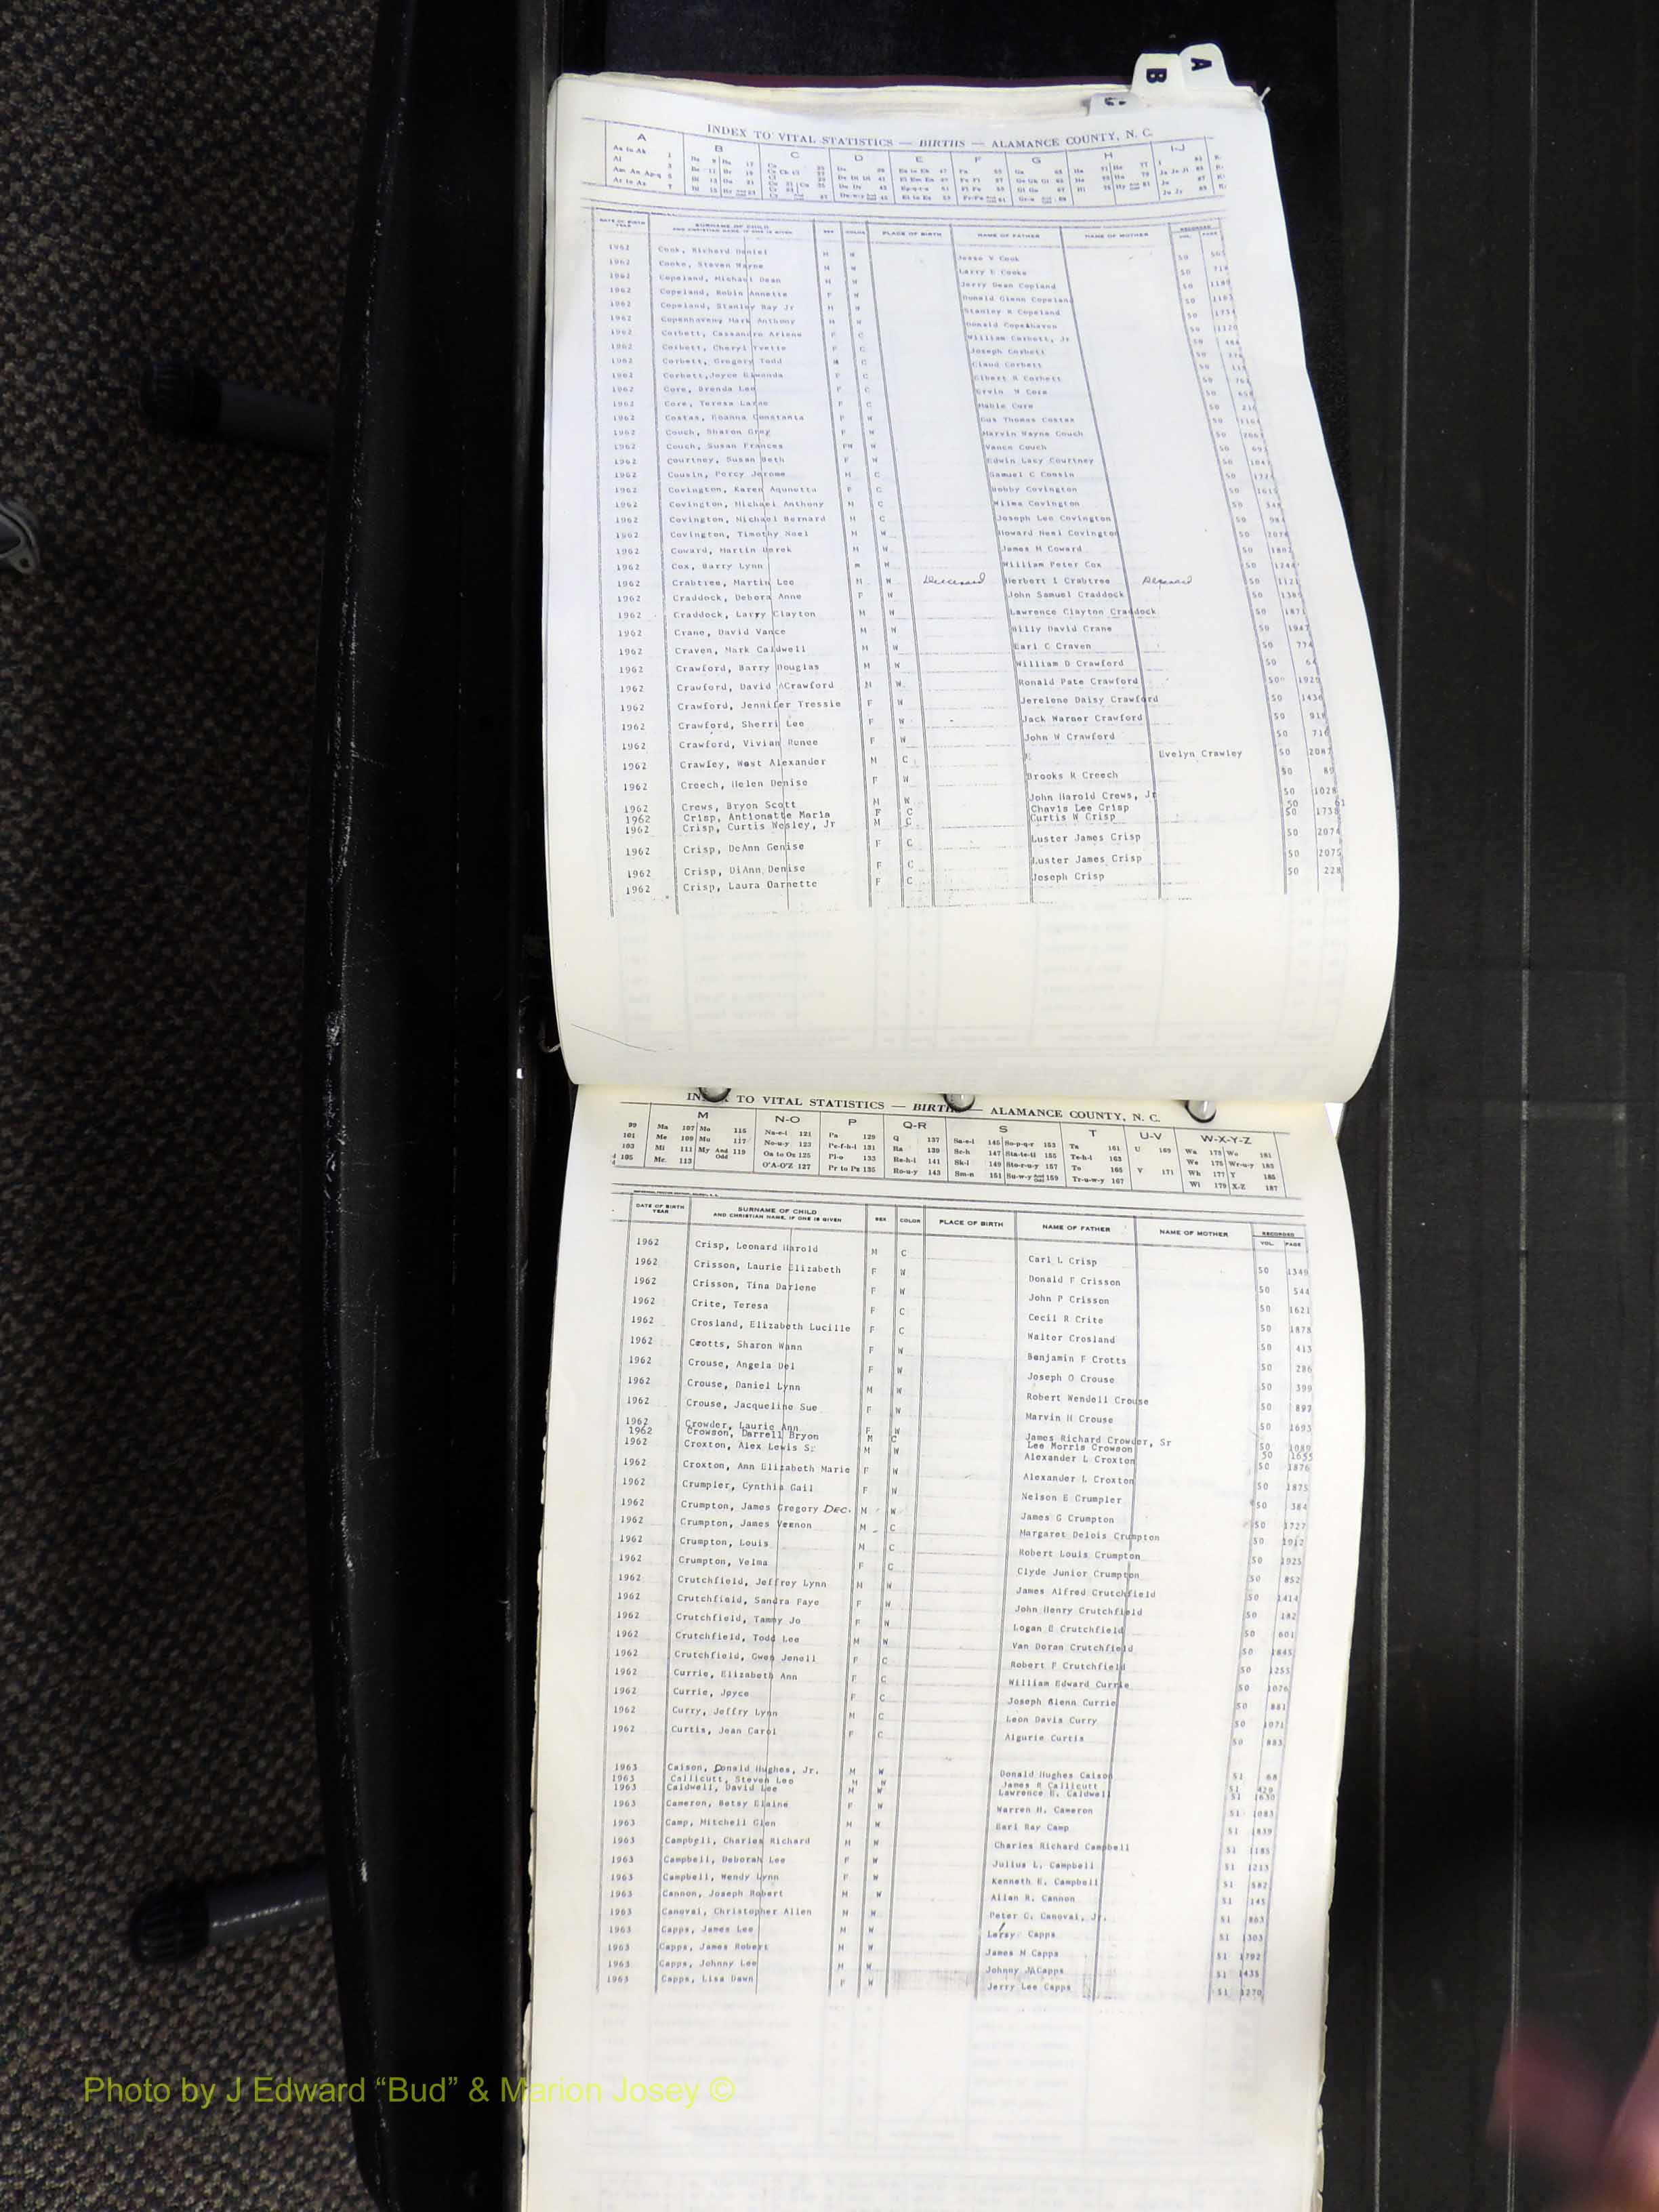 A
B
C
INDEX TO VITAL STATISTICS — BIRTHS — ALAMANCE COUNTY, N. C.
A B C D E F G H I-J
DATE OF BIRTH YEAR SURNAME OF CHILD AND CHRISTIAN NAME, IF ONE IS GIVEN SEX COLOR PLACE OF BIRTH NAME OF FATHER NAME OF MOTHER RECORDED VOL. PAGE
1962 Cook, Richard Daniel M W Jesse V Cook 50
1962 Cooke, Steven Wayne M W Larry E Cooke 50
1962 Copeland, Michael Dean M W Jerry Dean Copland 50
1962 Copeland, Robin Annette F W Donald Glenn Copeland 50
1962 Copeland, Stanley Ray Jr M W Stanley R Copeland 50
1962 Copenhaven, Mark Anthony M W Donald Copenhaven 50
1962 Corbett, Cassandra Arlene F C William Corbett, Jr 50
1962 Corbett, Cheryl Yvette F C Joseph Corbett 50
1962 Corbett, Gregory Todd M C Claud Corbett 50
1962 Corbett, Joyce F C Elbert R Corbett 50
1962 Core, Brenda Lee F C Ervin W Core 50
1962 Core, Teresa F C Core 50
1962 Costas, Roanna Constanta F W Gus Thomas Costas 50
1962 Couch, Sharon Gray F W Marvin Wayne Couch 50
1962 Couch, Susan Frances FW W Vance Couch 50
1962 Courtney, Susan Beth F W Edwin Lacy Courtney 50
1962 Cousin, Percy Jerome M C Samuel C Cousin 50
1962 Covington, Karen Aqunetta F C Bobby Covington 50
1962 Covington, Michael Anthony M C Wilma Covington 50
1962 Covington, Michael Bernard M C Joseph Lee Covington 50
1962 Covington, Timothy Noel M W Howard Neal Covington 50
1962 Coward, Martin Derek M W James M Coward 50
1962 Cox, Barry Lynn M W William Peter Cox 50
1962 Crabtree, Martin Lee M W Deceased Herbert L Crabtree Deceased 50
1962 Craddock, Debora Anne F W John Samuel Craddock 50
1962 Craddock, Larry Clayton M W Lawrence Clayton Craddock 50
1962 Crane, David Vance M W Billy David Crane 50 1947
1962 Craven, Mark Caldwell M W Earl C Craven 50 774
1962 Crawford, Barry Douglas M W William D Crawford 50
1962 Crawford, David ACrawford M W Ronald Pate Crawford 50
1962 Crawford, Jennifer Tressie F W Jerelene Daisy Crawford 50 1436
1962 Crawford, Sherri Lee F W Jack Warner Crawford 50
1962 Crawford, Vivian Renee F W John W Crawford 50 716
1962 Crawley, West Alexander M C Evelyn Crawley 50 2087
1962 Creech, Helen Denise F W Brooks R Creech 50 89
1962 Crews, Bryon Scott M W John Harold Crews, Jr 50 1028
1962 Crisp, Antionette Maria F C Chavis Lee Crisp 50 61
1962 Crisp, Curtis Wesley, Jr M C Curtis W Crisp 50 1738
1962 Crisp, DeAnn Genise F C Luster James Crisp 50 2074
1962 Crisp, DiAnn Denise F C Luster James Crisp 50 2075
1962 Crisp, Laura Darnette F C Joseph Crisp 50 228
INDEX TO VITAL STATISTICS — BIRTHS — ALAMANCE COUNTY, N. C.
M N-O P Q-R S T U-V W-X-Y-Z
99 Ma 107 Mo 115 Na-e-i 121 Pa 129 Q 137 Sa-e-i 145 So-p-q-r 153 Ta 161 U 169 Wa 173 Wo 181
101 Me 109 Mu 117 No-u-y 123 Pe-f-h-i 131 Ra 139 Sc-h 147 Sta-te-ti 155 Te-h-i 163 We 175 Wr-u-y 183
103 Mi 111 My And Odd 119 Oa to Oz 125 Pl-o 133 Re-h-i 141 Sk-l 149 Sto-r-u-y 157 To 165 V 171 Wh 177 Y 185
105 Mc 113 O'A-O'Z 127 Pr to Px 135 Ro-u-y 143 Sm-n 151 Su-w-y 159 Tr-u-w-y 167 Wi 179 X-Z 187
DATE OF BIRTH YEAR SURNAME OF CHILD AND CHRISTIAN NAME, IF ONE IS GIVEN SEX COLOR PLACE OF BIRTH NAME OF FATHER NAME OF MOTHER RECORDED VOL. PAGE
1962 Crisp, Leonard Harold M C Carl L Crisp 50 1349
1962 Crisson, Laurie Elizabeth F W Donald F Crisson 50 544
1962 Crisson, Tina Darlene F W John P Crisson 50 1621
1962 Crite, Teresa F C Cecil R Crite 50 1878
1962 Crosland, Elizabeth Lucille F C Walter Crosland 50 413
1962 Crotts, Sharon Wann F W Benjamin F Crotts 50 286
1962 Crouse, Angela Del F W Joseph O Crouse 50 399
1962 Crouse, Daniel Lynn M W Robert Wendell Crouse 50 897
1962 Crouse, Jacqueline Sue F W Marvin H Crouse 50 1693
1962 Crowder, Laurie Ann F W James Richard Crowder, Sr 50 1089
1962 Crowson, Darrell Bryon M C Lee Morris Crowson 50 1655
1962 Croxton, Alex Lewis S. M W Alexander L Croxton 50 1876
1962 Croxton, Ann Elizabeth Marie F W Alexander L Croxton 50 1875
1962 Crumpler, Cynthia Gail F W Nelson E Crumpler 50 384
1962 Crumpton, James Gregory DEC. M W James G Crumpton 50 1727
1962 Crumpton, James Vernon M C Margaret Delois Crumpton 50 1912
1962 Crumpton, Louis M C Robert Louis Crumpton 50 1925
1962 Crumpton, Velma F C Clyde Junior Crumpton 50 852
1962 Crutchfield, Jeffrey Lynn M W James Alfred Crutchfield 50 1414
1962 Crutchfield, Sandra Faye F W John Henry Crutchfield 50 182
1962 Crutchfield, Tammy Jo F W Logan E Crutchfield 50 601
1962 Crutchfield, Todd Lee M W Van Doran Crutchfield 50 1845
1962 Crutchfield, Gwen Jenell F C Robert F Crutchfield 50 1255
1962 Currie, Elizabeth Ann F C William Edward Currie 50 1076
1962 Currie, Joyce F C Joseph Glenn Currie 50 881
1962 Curry, Jeffry Lynn M C Leon Davis Curry 50 1071
1962 Curtis, Jean Carol F C Algurie Curtis 50 883
1963 Caison, Donald Hughes, Jr. M W Donald Hughes Caison 51 68
1963 Callicutt, Steven Lee M W James R Callicutt 51 429
1963 Caldwell, David Lee M W Lawrence E. Caldwell 51 1630
1963 Cameron, Betsy Elaine F W Warren H. Cameron 51 1083
1963 Camp, Mitchell Glen M W Earl Ray Camp 51 1839
1963 Campbell, Charles Richard M W Charles Richard Campbell 51 1185
1963 Campbell, Deborah Lee F W Julius L. Campbell 51 1213
1963 Campbell, Wendy Lynn F W Kenneth E. Campbell 51 582
1963 Cannon, Joseph Robert M W Allan R. Cannon 51 145
1963 Canovai, Christopher Allen M W Peter C. Canovai, Jr. 51 863
1963 Capps, James Lee M W Leroy Capps 51 1303
1963 Capps, James Robert M W James M Capps 51 1792
1963 Capps, Johnny Lee M W Johnny Capps 51 1435
1963 Capps, Lisa Dawn F W Jerry Lee Capps 51 1270
Photo by J Edward “Bud” & Marion Josey ©